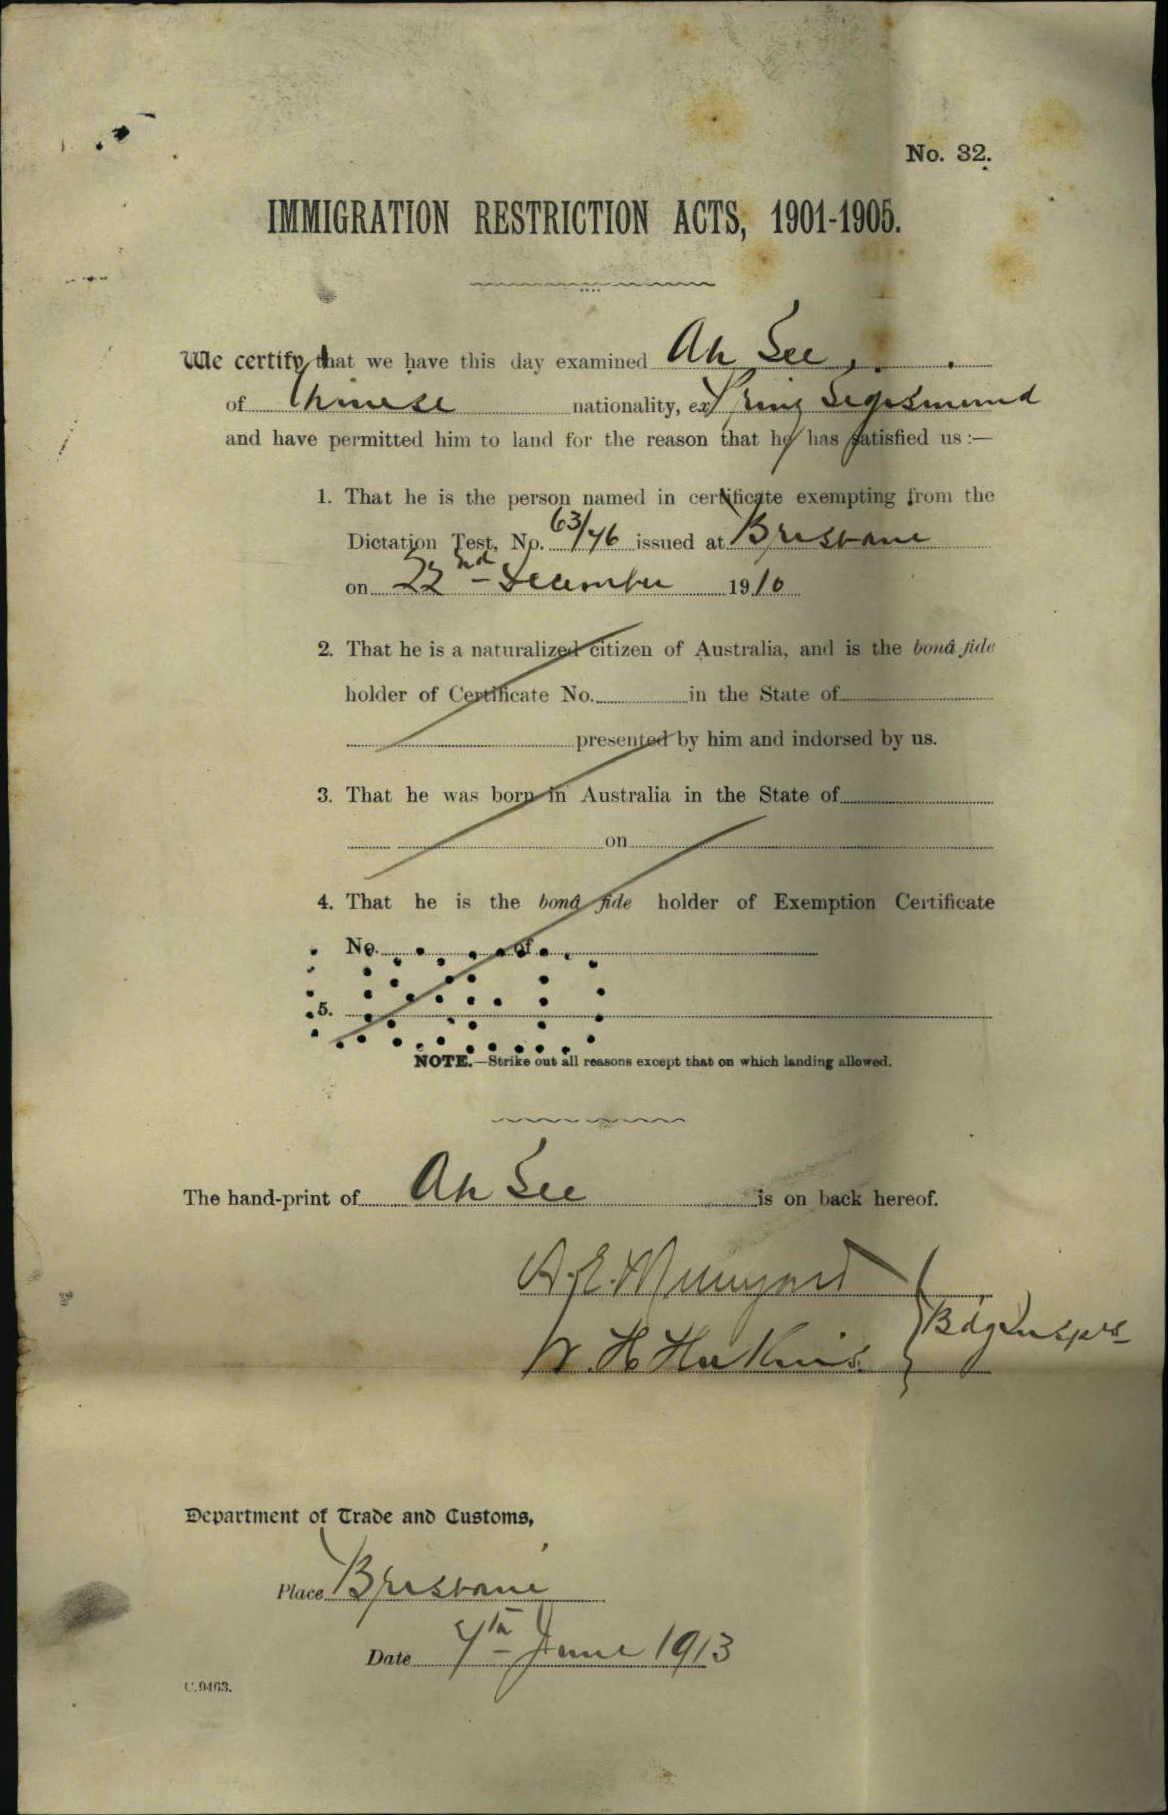 No. 32.
IMMIGRATION RESTRICTION ACTS, 1901-1905.
We certify that we have this day examined Ah See
of Chinese nationality, ex Prinz Sigismund
and have permitted him to land for the reason that he has satisfied us:—
1. That he is the person named in certificate exempting from the
Dictation Test, No. 63/46 issued at Brisbane
on 22nd December 1910
2. That he is a naturalized citizen of Australia, and is the bonâ fide
holder of Certificate No. in the State of
presented by him and indorsed by us.
3. That he was born in Australia in the State of
on
4. That he is the bonâ fide holder of Exemption Certificate
No. of
5.
NOTE.—Strike out all reasons except that on which landing allowed.
The hand-print of Ah See is on back hereof.
A. E.
W. H.
Department of Trade and Customs,
Place Brisbane
Date 7th June 1913
C.9463.